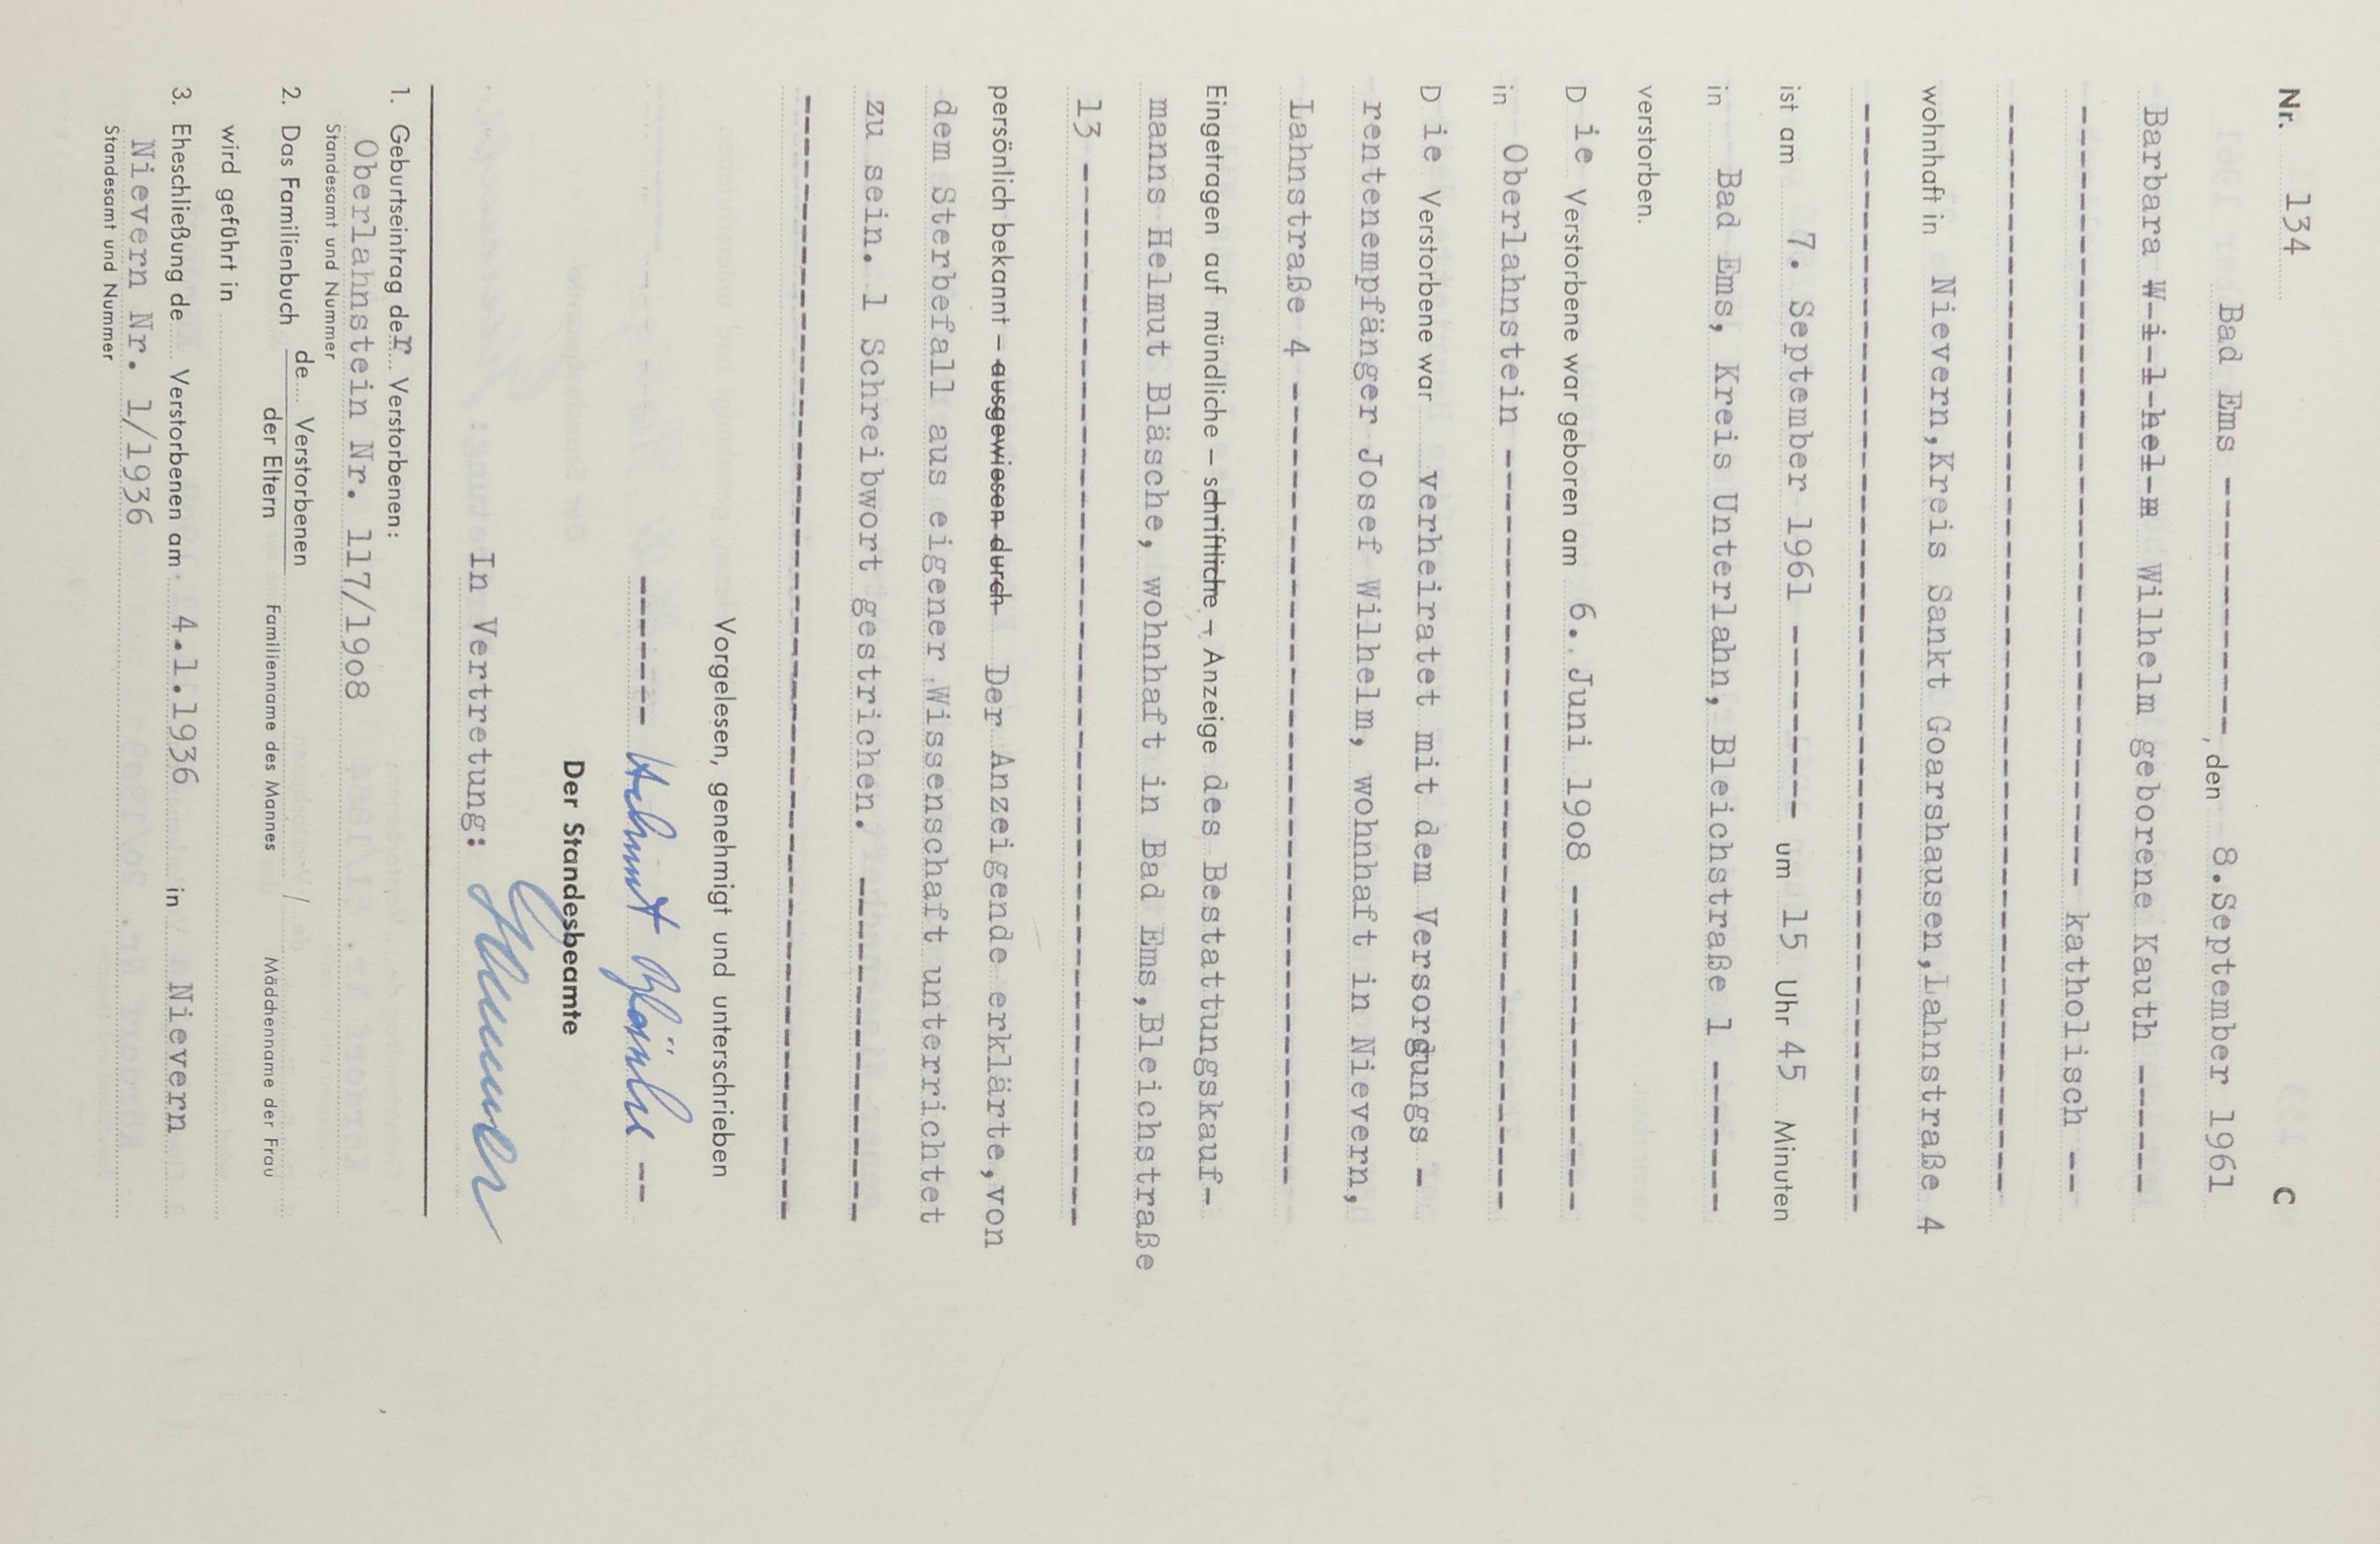 Nr. 134 C
Bad Ems ------------, den 8.September 1961
Barbara W-i-l-hel-m Wilhelm geborene Kauth -------
------------------------------------ katholisch --
--------------------------------------------------
wohnhaft in Nievern,Kreis Sankt Goarshausen,Lahnstraße 4
--------------------------------------------------
ist am 7. September 1961 --------- um 15 Uhr 45 Minuten
in Bad Ems, Kreis Unterlahn, Bleichstraße 1 -------
verstorben.
D ie Verstorbene war geboren am 6. Juni 19o8 --------------
in Oberlahnstein -----------------------------------
D ie Verstorbene war verheiratet mit dem Versorgungs -
rentenempfänger Josef Wilhelm, wohnhaft in Nievern,
Lahnstraße 4 -------------------------------------
Eingetragen auf mündliche – schriftliche – Anzeige des Bestattungskauf-
manns Helmut Bläsche, wohnhaft in Bad Ems,Bleichstraße
13 -----------------------------------------------
persönlich bekannt – ausgewiesen durch Der Anzeigende erklärte,von
dem Sterbefall aus eigener Wissenschaft unterrichtet
zu sein. 1 Schreibwort gestrichen. ----------------
--------------------------------------------------
Vorgelesen, genehmigt und unterschrieben
------- Helmut Bläsche --
Der Standesbeamte
In Vertretung:
1. Geburtseintrag der Verstorbenen:
Oberlahnstein Nr. 117/19o8
Standesamt und Nummer
2. Das Familienbuch de Verstorbenen /
der Eltern Familienname des Mannes Mädchenname der Frau
wird geführt in
3. Eheschließung de Verstorbenen am 4.1.1936 in Nievern
Nievern Nr. 1/1936
Standesamt und Nummer